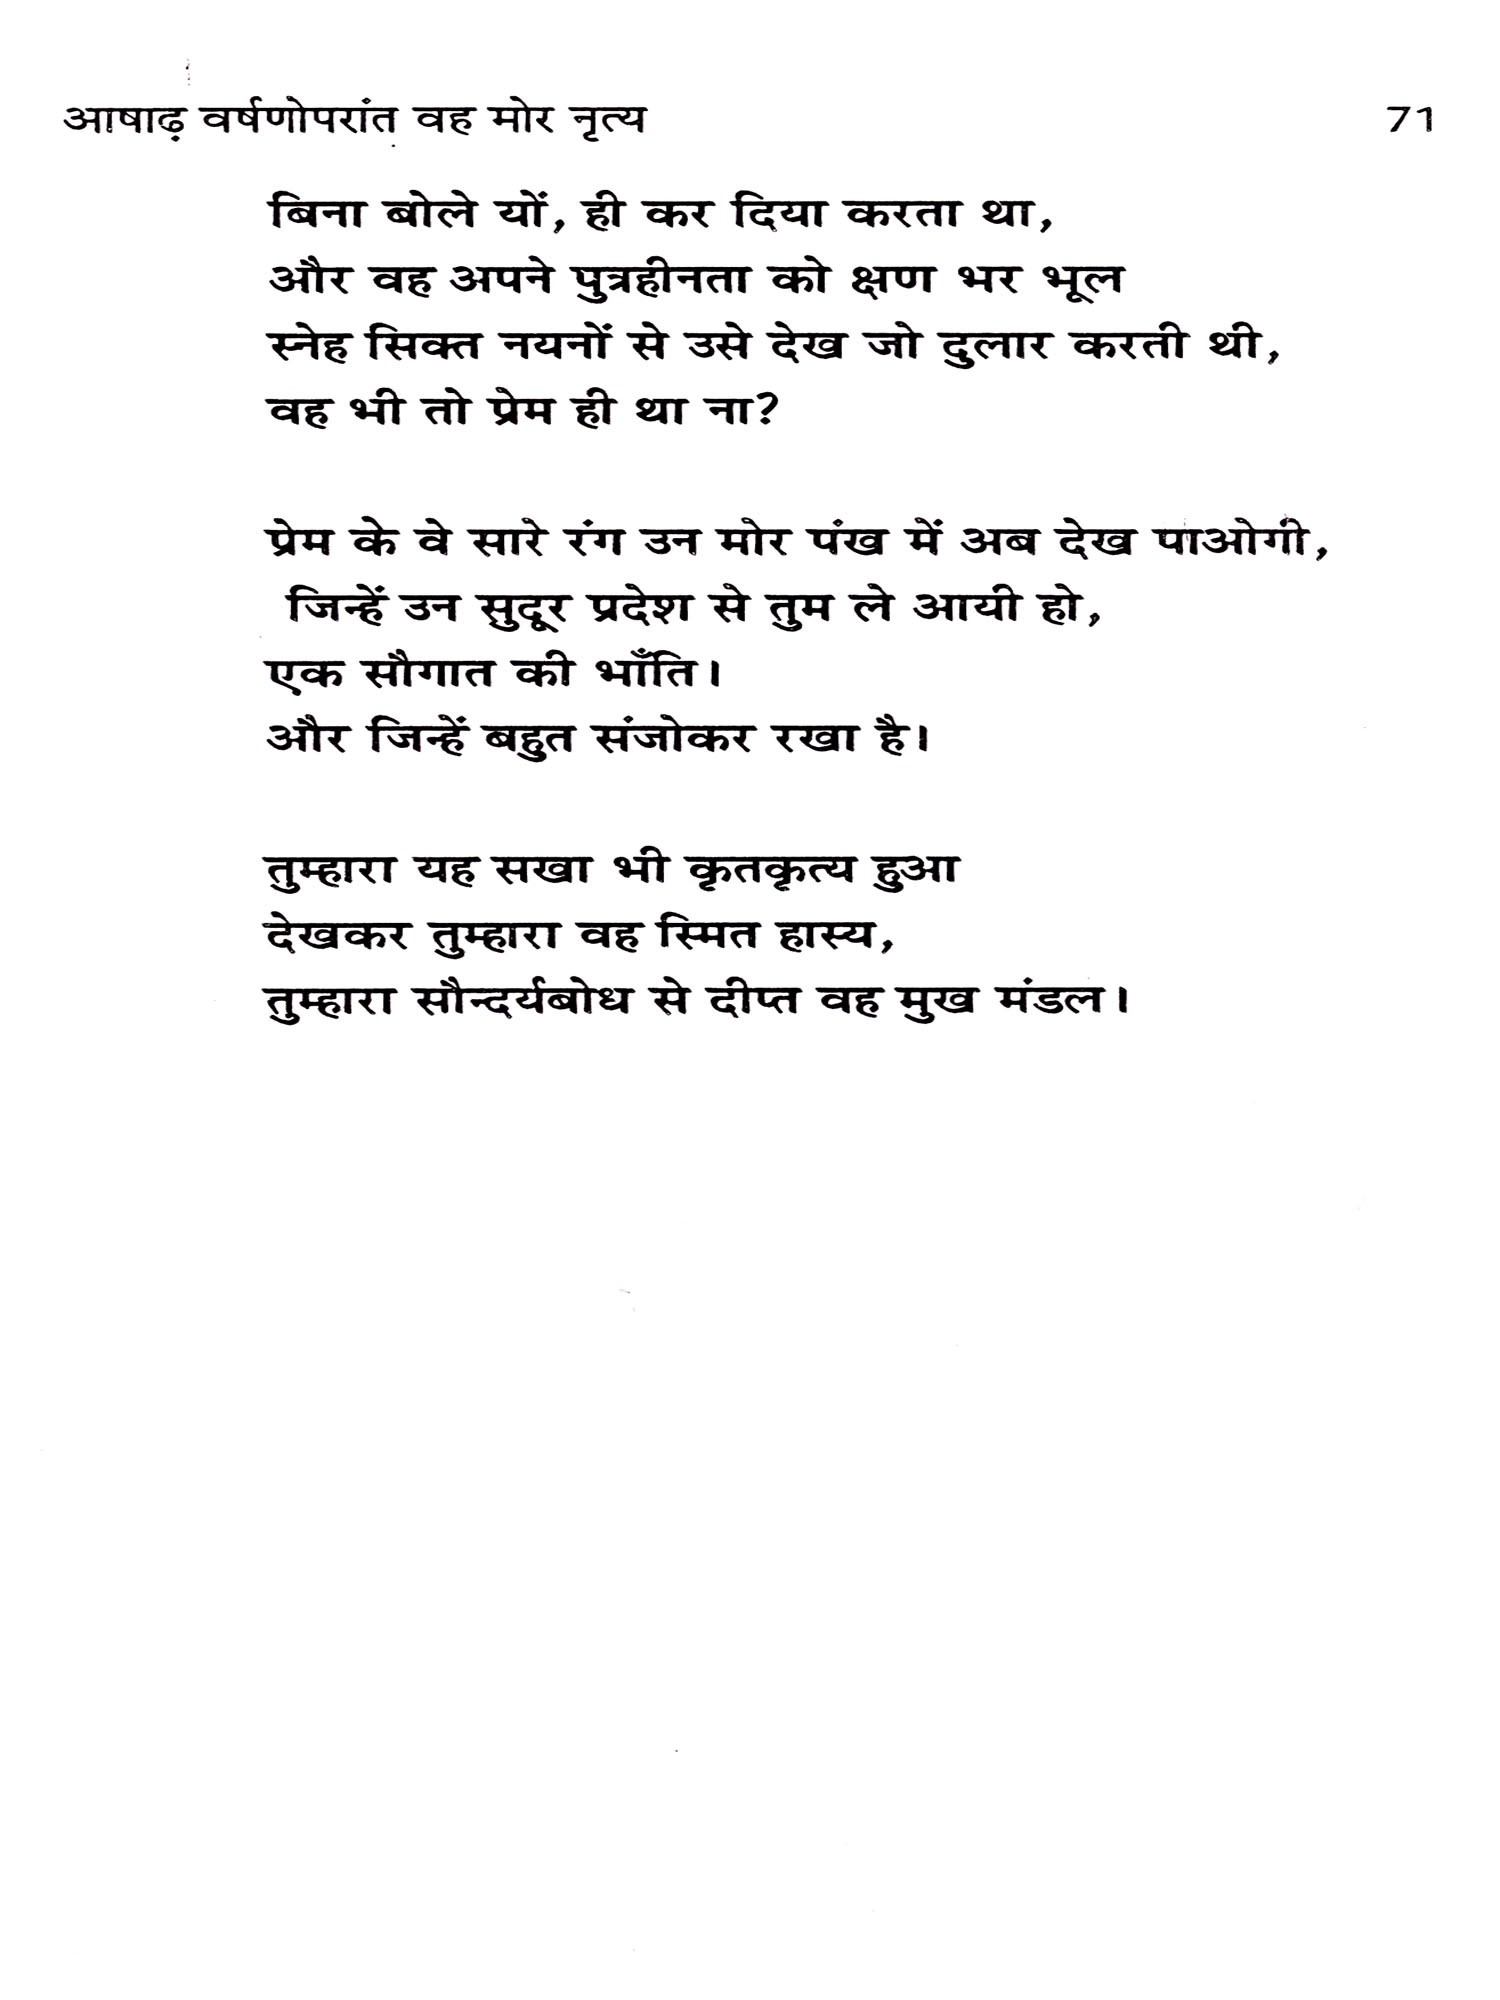 आषाढ़ वर्षणोपरांत वह मोर नृत्य 71
बिना बोले यों, ही कर दिया करता था,
और वह अपने पुत्रहीनता को क्षण भर भूल
स्नेह सिक्त नयनों से उसे देख जो दुलार करती थी,
वह भी तो प्रेम ही था ना?
प्रेम के वे सारे रंग उन मोर पंख में अब देख पाओगी,
जिन्हें उन सुदूर प्रदेश से तुम ले आयी हो,
एक सौगात की भाँति।
और जिन्हें बहुत संजोकर रखा है।
तुम्हारा यह सखा भी कृतकृत्य हुआ
देखकर तुम्हारा वह स्मित हास्य,
तुम्हारा सौन्दर्यबोध से दीप्त वह मुख मंडल।